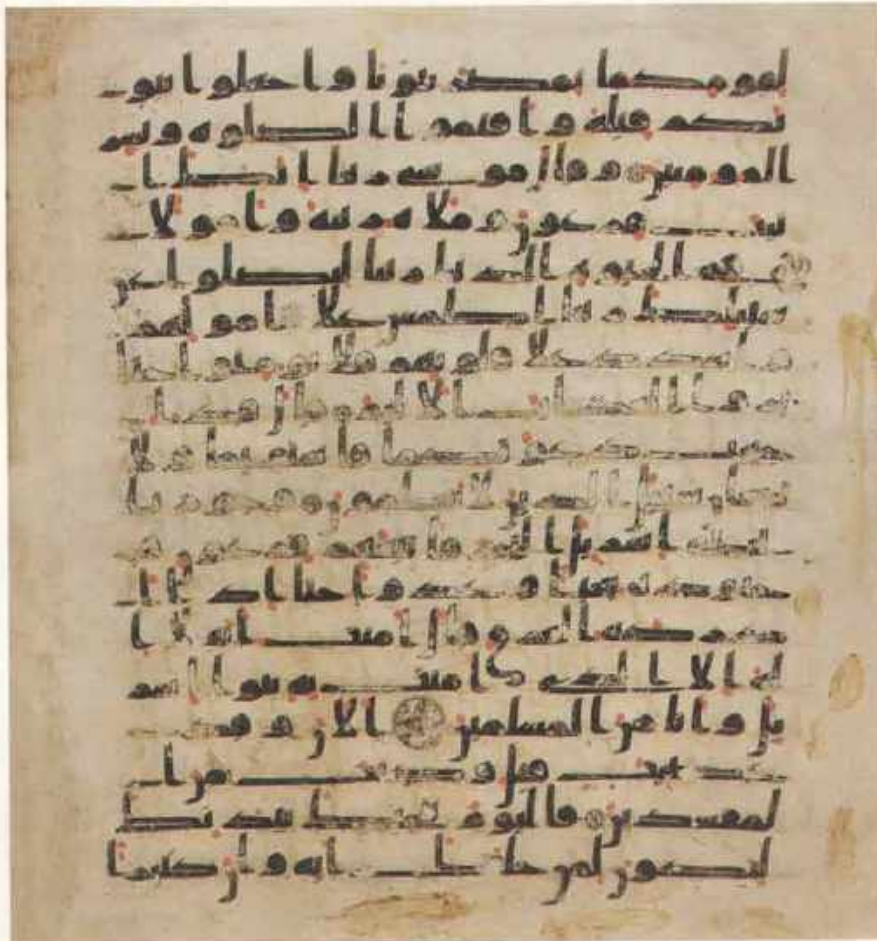 لقومكما بمصر بيوتا واجعلوا بيو
تكم قبلة واقيموا الصلوة وبشر
المومنين وقال موسى ربنا انك ا
تيت فرعون وملاه زينة وامولا
في الحيوة الدنيا ربنا ليضلوا عن
سبيلك ربنا اطمس على امولهم
واشدد على قلوبهم فلا يومنوا حتى
يروا العذاب الاليم قال قد ا
جيبت دعوتكما فاستقيما ولا
تتبعان سبيل الذين لا يعلمون وجوزنا
ببني اسريل البحر فاتبعهم فرعون و
جنوده بغيا وعدوا حتى اذا ا
دركه الغرق قال امنت انه لا ا
له الا الذي امنت به بنوا اسر
يل وانا من المسلمين الن وقد
عصيت قبل وكنت من ا
لمفسدين فاليوم ننجيك ببدنك
لتكون لمن خلفك اية وان كثيرا